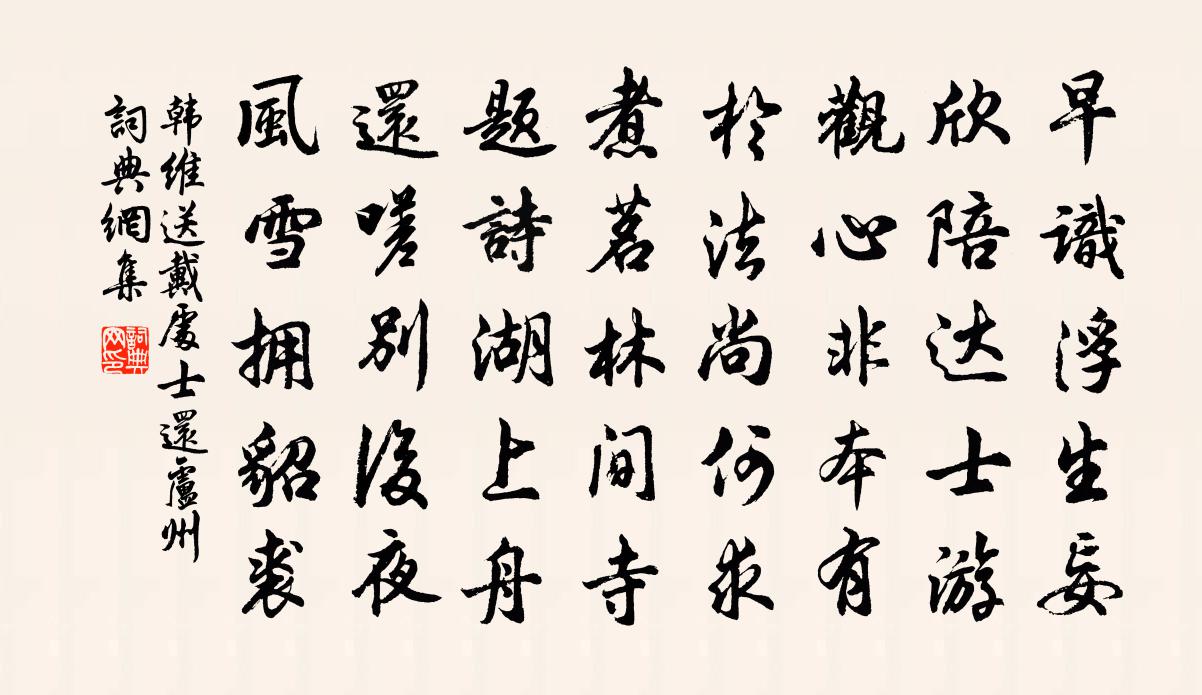 早識浮生妄
欣陪达士游
觀心非本有
於法尚何求
煮茗林間寺
题詩湖上舟
還嗟别後夜
風雪拥貂裘
韩维送戴處士還廬州
詞典網集
詞典
网印